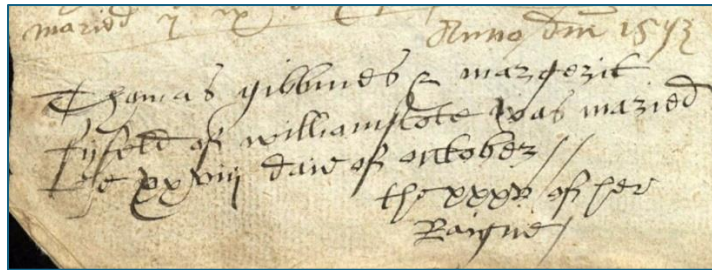 maried
Anno dm 1593
Thomas gibbines & margerit
fyfeld of williamscote was maried
the xxviij daie of october //
the xxxv of her
Raigne /